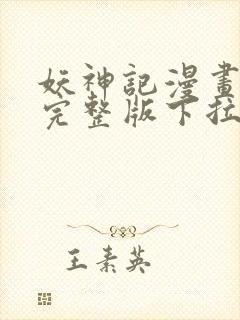 妖神記漫畫
完整版下拉
王素英